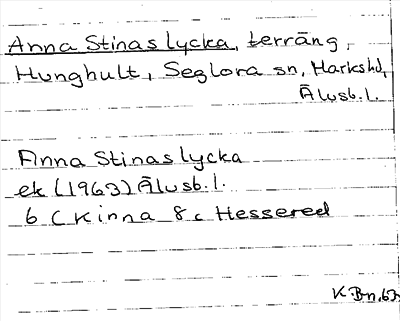 Anna Stinaslycka, terräng,
Hunghult, Seglora sn, Markshd,
Älvsb. l.
Anna Stinaslycka
ek (1963) Älvsb. l.
6 C Kinna 8 c Hessered
K. Bn. 63.